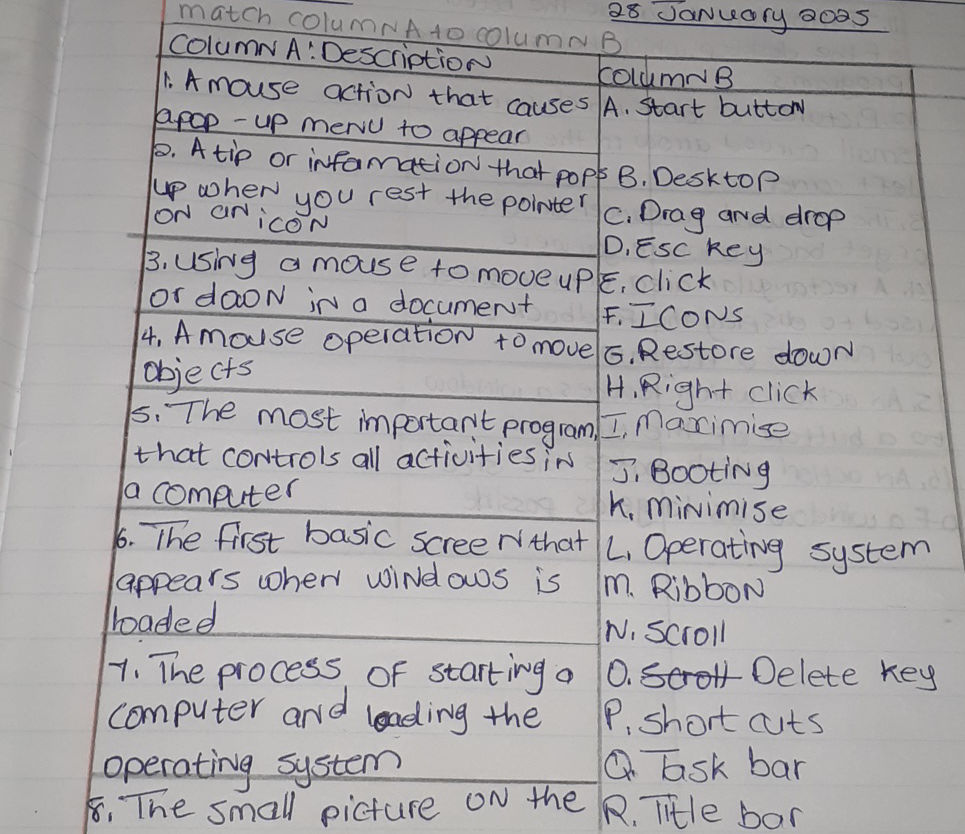 28 January 2025
match column A to column B
Column A: Description
Column B
1. A mouse action that causes
a pop-up menu to appear
2. A tip or infamation that pops
up when you rest the pointer
on an icon
3. Using a mouse to move up
or daon in a document
4. A mouse operation to move
objects
5. The most important program,
that controls all activities in
a computer
6. The first basic screen that
appears when windows is
loaded
7. The process of starting a
computer and loading the
operating system
8. The small picture on the
A. Start button
B. Desktop
C. Drag and drop
D. Esc key
E. Click
F. Icons
G. Restore down
H. Right click
I. Maximise
J. Booting
K. Minimise
L. Operating system
M. Ribbon
N. Scroll
O. Scroll Delete key
P. Short cuts
Q. Task bar
R. Title bar